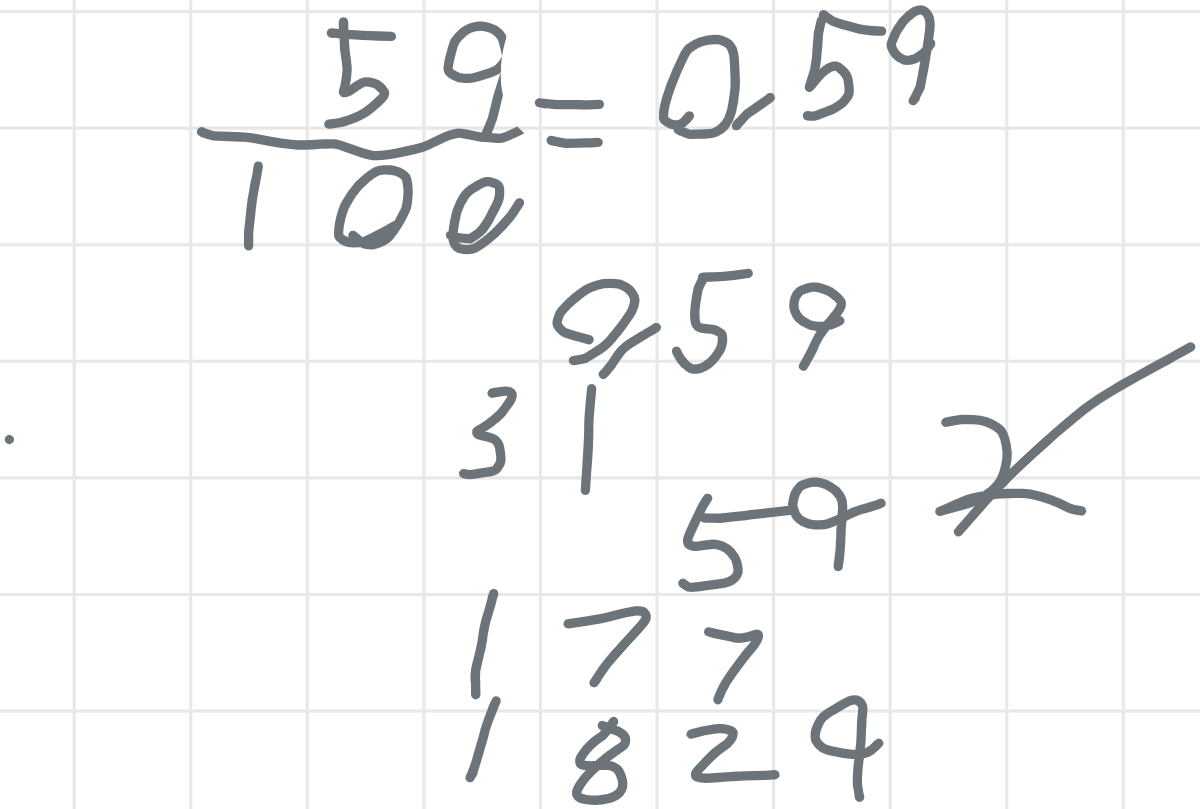 59
100 = 0,59
0,59
31
59
177
1829